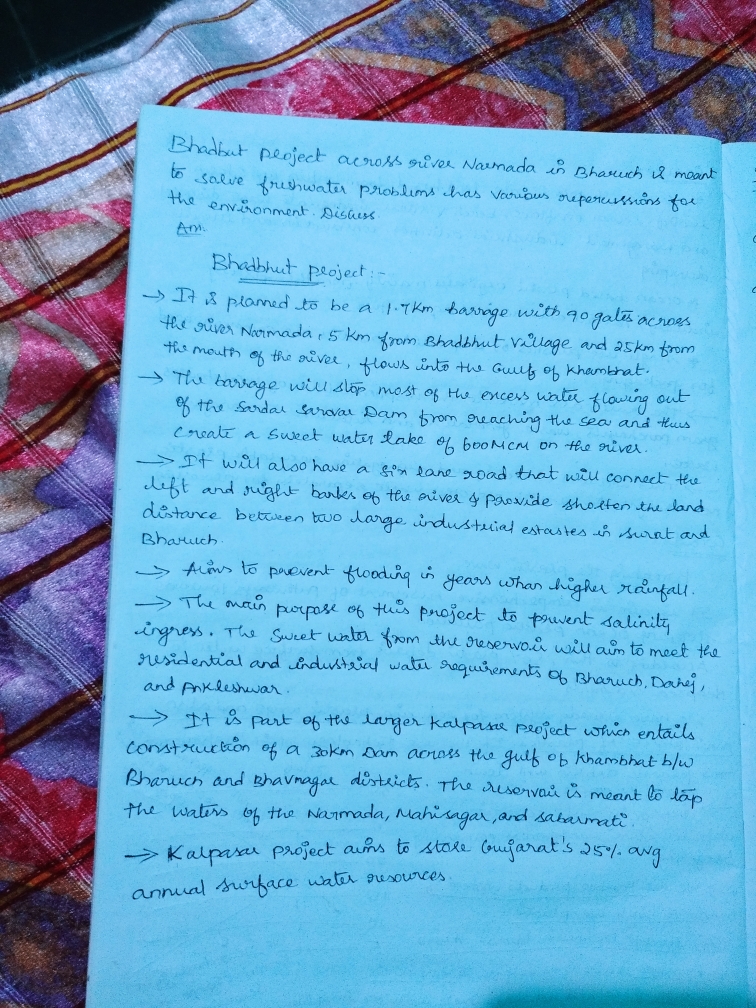 Bhadbut project across river Narmada in Bharuch is meant
to solve freshwater problems has various repercussions for
the environment. Discuss
Ans.
Bhadbhut project:-
→ It is planned to be a 1.7km barrage with 90 gates across
the river Narmada, 5 km from Bhadbhut village and 25km from
the mouth of the river, flows into the Gulf of Khambhat.
→ The barrage will stop most of the excess water flowing out
of the Sardar Sarovar Dam from reaching the sea and thus
create a sweet water lake of 600MCM on the river.
→ It will also have a six lane road that will connect the
left and right banks of the river & provide shorten the land
distance between two large industrial estastes in Surat and
Bharuch.
→ Aims to prevent flooding in years whan higher rainfall.
→ The main purpose of this project to prevent salinity
ingress. The sweet water from the reservoir will aim to meet the
residential and industrial water requirements of Bharuch, Dahej,
and Ankleshwar.
→ It is part of the larger Kalpasar project which entails
construction of a 30km Dam across the gulf of Khambhat b/w
Bharuch and Bhavnagar districts. The reservoir is meant to tap
the waters of the Narmada, Mahisagar, and Sabarmati.
→ Kalpasar project aims to store Gujarat's 25% avg
annual surface water resources.